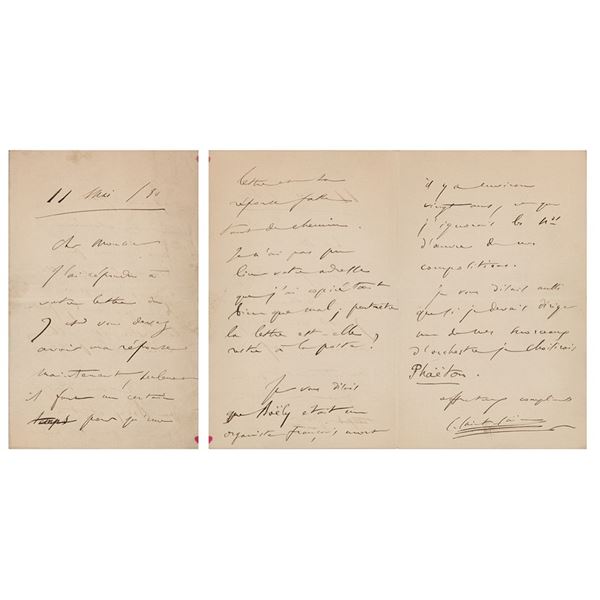 11 Mai /80
Cher Monsieur
J'ai répondu à
votre lettre du
7 et vous devez
avoir ma réponse
maintenant, seulement
il faut un certain
temps pour qu'une
lettre et sa
réponse fasse
tant de chemin.
Je n'ai pas pu
lire votre adresse
que j'ai copié tant
bien que mal; peut-être
la lettre est-elle
restée à la poste?
Je vous disais
que Boëly était un
organiste français mort
il y a environ
vingt ans, et que
j'ignorais le No
d'œuvre de ses
compositions.
Je vous disais aussi
que si je devais diriger
un de mes morceaux
d'orchestre je choisirais
Phaëton.
affectueux compliments
C. Saint-Saëns